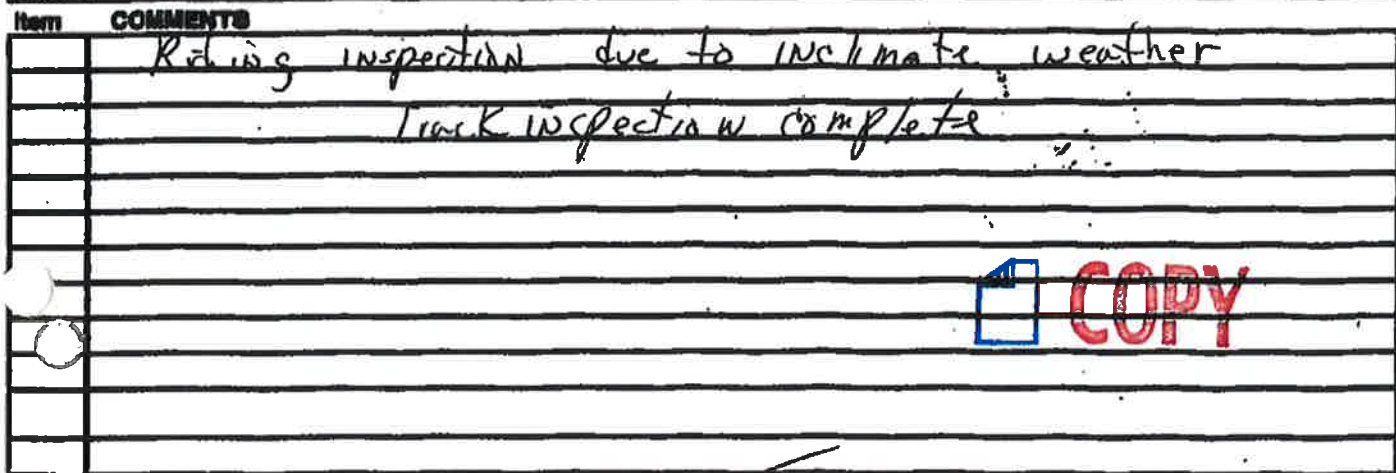 Item COMMENTS
Riding inspection due to inclimate weather
Track inspection complete
COPY